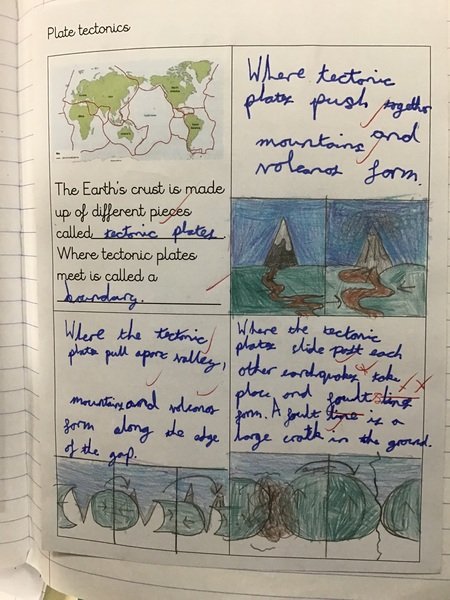 Plate tectonics
The Earth's crust is made
up of different pieces
called tectonic plates.
Where tectonic plates
meet is called a
boundary.
Where tectonic
plates push together
mountains and
volcanos form.
Where the tectonic
plates pull apart valley,
mountains and volcanos
form along the edge
of the gap.
Where the tectonic
plates slide past each
other earthquakes take
place and foult line
form. A foult line is a
large crack in the ground.